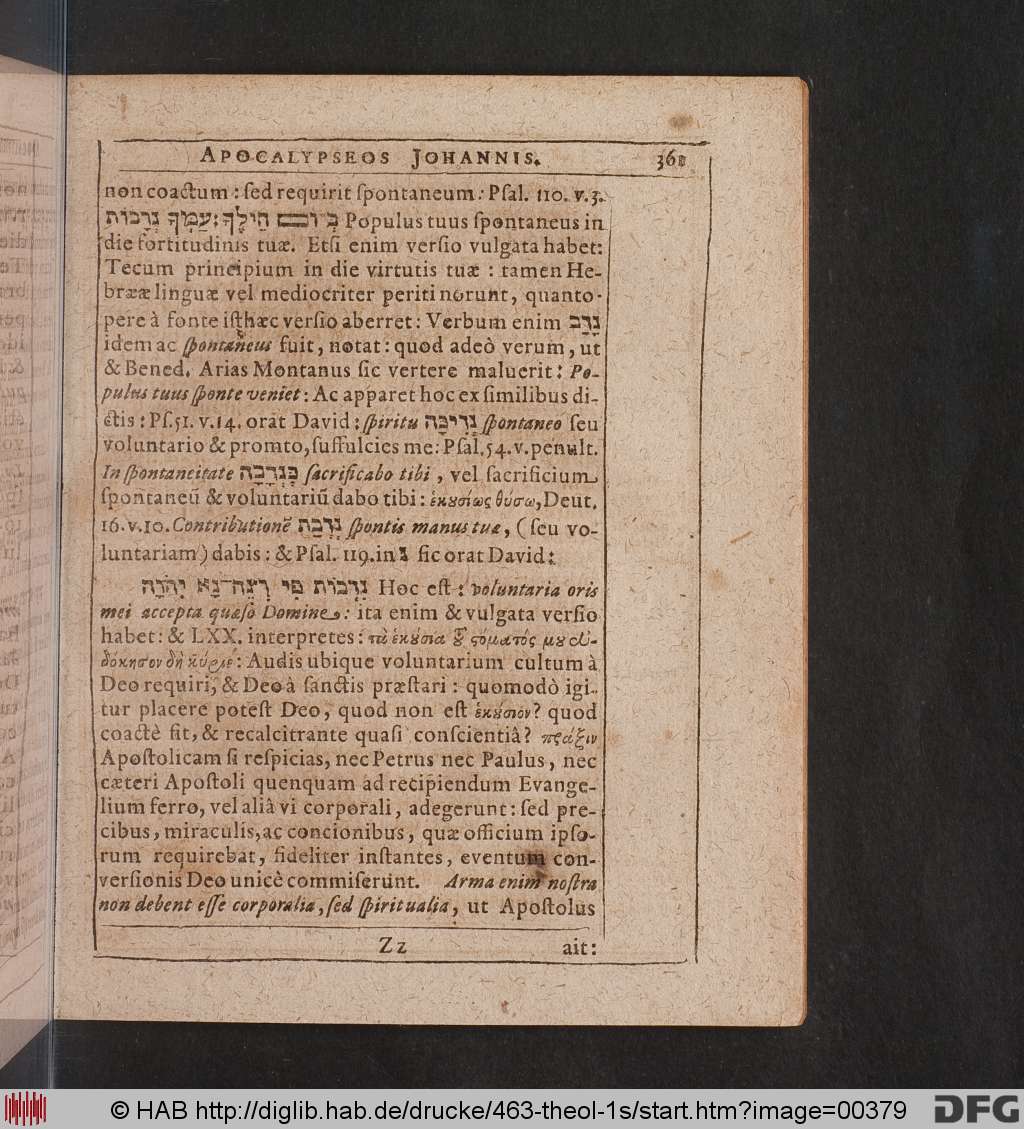 APOCALYPSEOS JOHANNIS. 361
non coactum : sed requirit spontaneum : Psal. 110. v. 3.
חֵילֶךָ: עַמְּךָ נְדָבוֹת Populus tuus spontaneus in
die fortitudinis tuæ. Etsi enim versio vulgata habet:
Tecum principium in die virtutis tuæ : tamen He-
brææ linguæ vel mediocriter periti norunt, quanto-
pere à fonte isthæc versio aberret : Verbum enim נָדַב
idem ac spontaneus fuit, notat : quod adeò verum, ut
& Bened. Arias Montanus sic vertere maluerit : Po-
pulus tuus sponte veniet : Ac apparet hoc ex similibus di-
ctis : Ps. 51. v. 14. orat David : spiritu נְדִיבָה spontaneo seu
voluntario & promto, suffulcies me : Psal. 54. v. penult.
In spontaneitate בִּנְדָבָה sacrificabo tibi, vel sacrificium
spontaneũ & voluntariũ dabo tibi : ἑκȣσίως θύσω, Deut.
16. v. 10. Contributionẽ נִדְבַת spontis manus tuæ, (seu vo-
luntariam) dabis : & Psal. 119. in נ sic orat David :
נִדְבוֹת פִּי רְצֵה־נָא יְהוָה Hoc est : voluntaria oris
mei accepta quæso Domine : ita enim & vulgata versio
habet : & LXX. interpretes : τὰ ἑκȣσια τȣ ϛόματός μȣ εὐ-
δόκησον δὴ κύριε : Audis ubique voluntarium cultum à
Deo requiri, & Deo à sanctis præstari : quomodò igi-
tur placere potest Deo, quod non est ἑκȣσιον? quod
coactè fit, & recalcitrante quasi conscientiâ? πρᾶξιν
Apostolicam si respicias, nec Petrus nec Paulus, nec
cæteri Apostoli quenquam ad recipiendum Evange-
lium ferro, vel aliâ vi corporali, adegerunt : sed pre-
cibus, miraculis, ac concionibus, quæ officium ipso-
rum requirebat, fideliter instantes, eventum con-
versionis Deo unicè commiserunt. Arma enim nostra
non debent esse corporalia, sed spiritualia, ut Apostolus
Zz ait:
© HAB http://diglib.hab.de/drucke/463-theol-1s/start.htm?image=00379 DFG